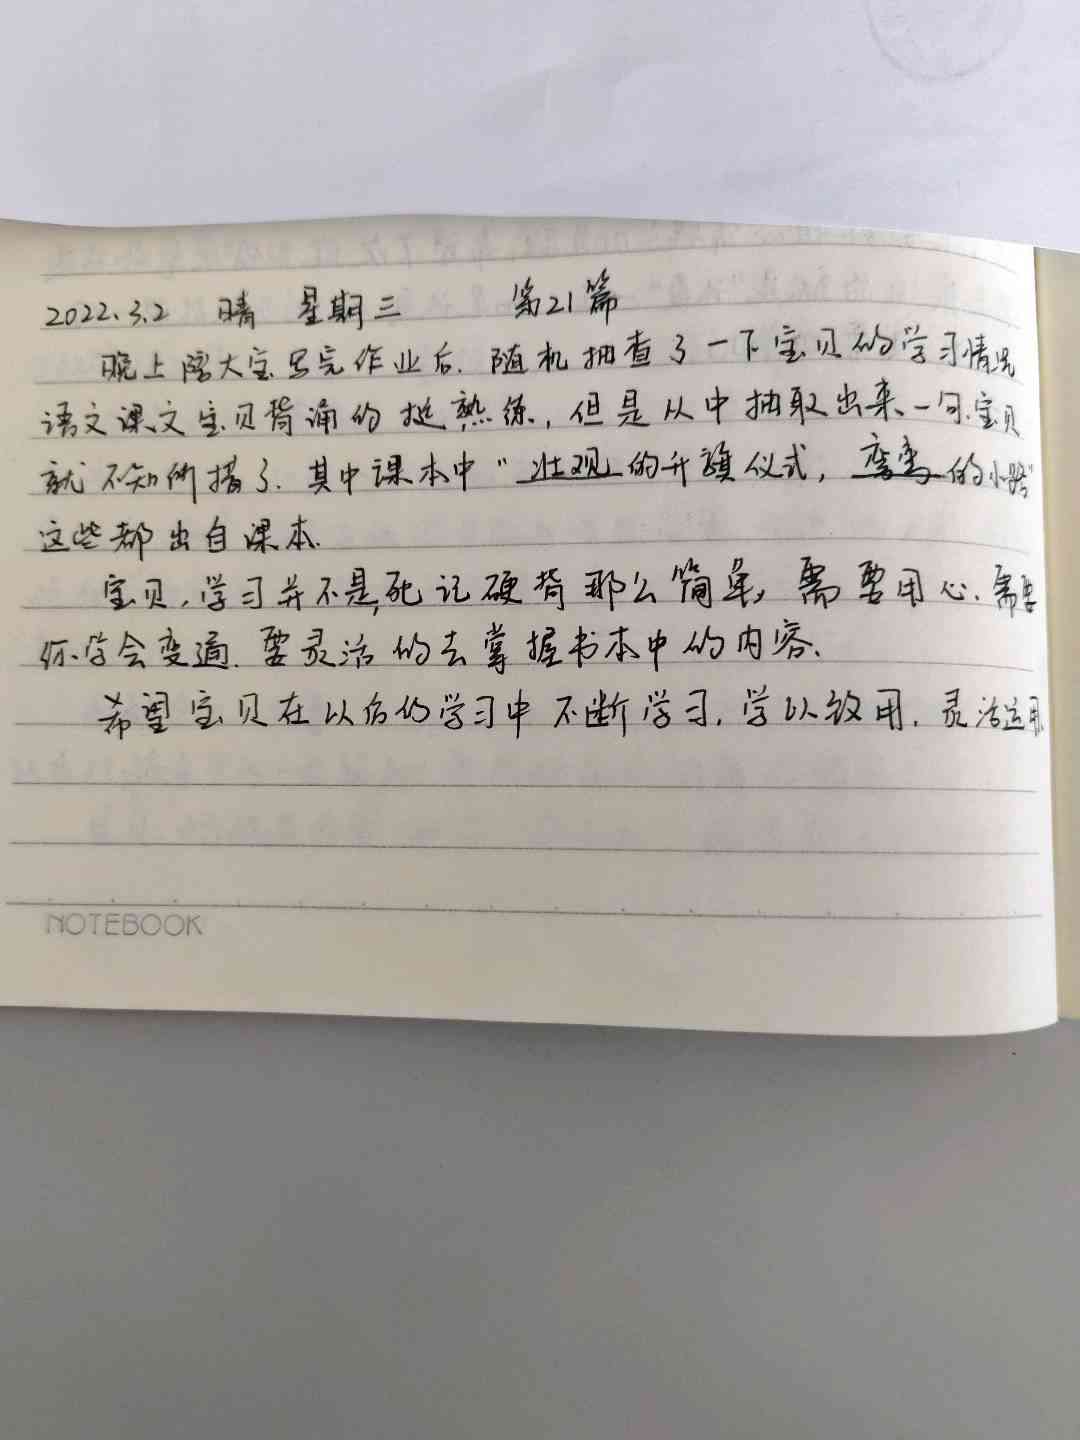 2022.3.2 晴 星期三 第21篇
晚上陪大宝写完作业后.随机抽查了一下宝贝的学习情况
语文课文宝贝背诵的挺熟练,但是从中抽取出来一句.宝贝
就不知所措了.其中课本中"壮观的升旗仪式,弯弯的小路"
这些都出自课本.
宝贝,学习并不是,死记硬背那么简单,需要用心.需要
你学会变通.要灵活的去掌握书本中的内容.
希望宝贝在以后的学习中不断学习.学以致用.灵活运用.
NOTEBOOK